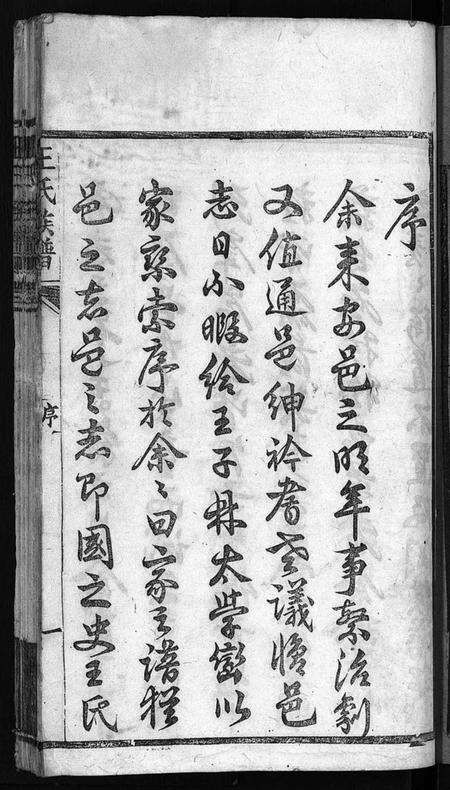 序
余来安邑之明年事繁治劇
又值通邑紳衿耆老議修邑
志日不暇給王子太學以
家乘索序於余〻曰家之譜猶
邑之志邑之志即國之史王氏
王氏族譜
序
一